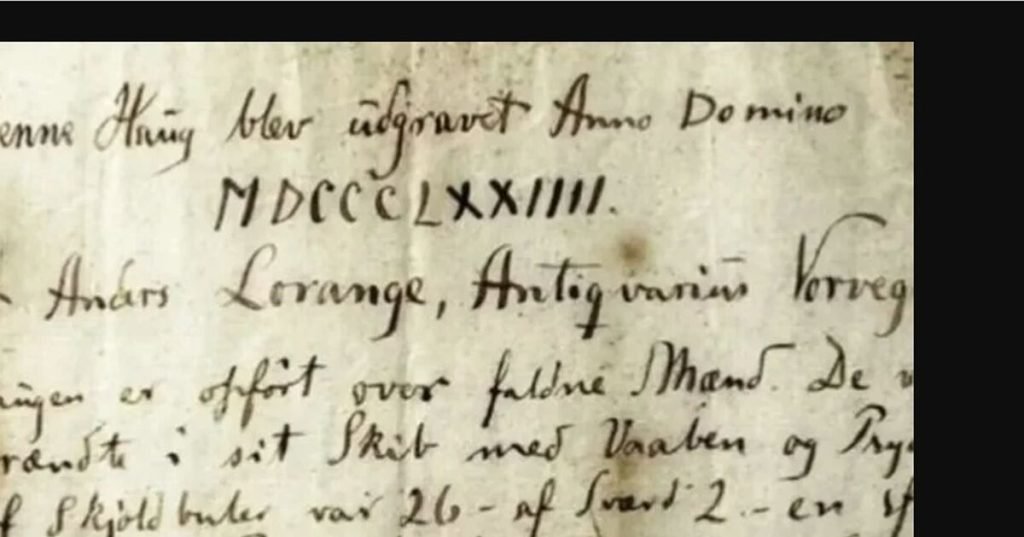 enne Haug blev udgravet Anno Domino
MDCCCLXXIIII.
Anders Lorange, Antiqvarius Norveg
ingen er opført over faldne Mænd. De
rændte i sit Skib med Vaaben og Pry
f Skjoldbuler var 26 - af Sværd 2 - en